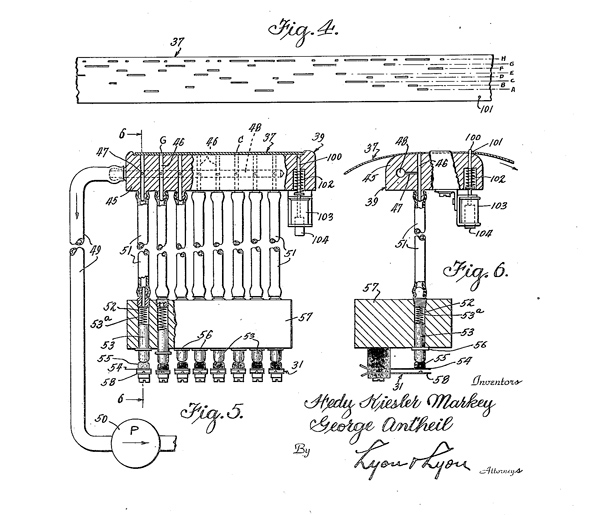 Fig. 4.
37
H
G
F
E
D
C
B
A
101
6
G
46
46
48
C
37
39
47
100
102
45
103
104
49
51
51
52
53a
53
57
56
53
55
54
58
31
6
50
P
Fig. 5.
37
48
46
100
101
45
102
39
47
103
104
51
Fig. 6.
57
52
53a
53
56
55
54
31
58
Inventors
Hedy Kiesler Markey
George Antheil
By
Lyon & Lyon
Attorneys